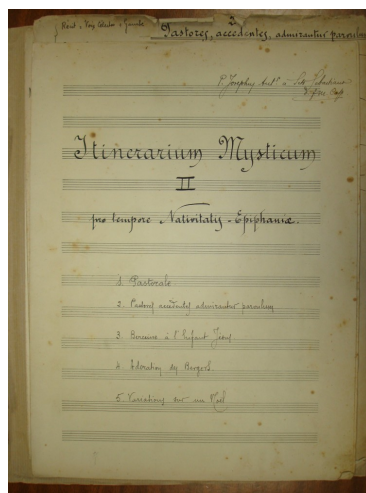 2.
Pastores, accedentes, admirantur parvulum
P. Josephus Ant. a
Itinerarium Mysticum
II
pro tempore Nativitatis - Epiphaniæ.
1. Pastorale
2. Pastores accedentes admirantur parvulum
3. Berceuse à l'Enfant Jésus
4. Adoration des Bergers.
5. Variations sur un Noël